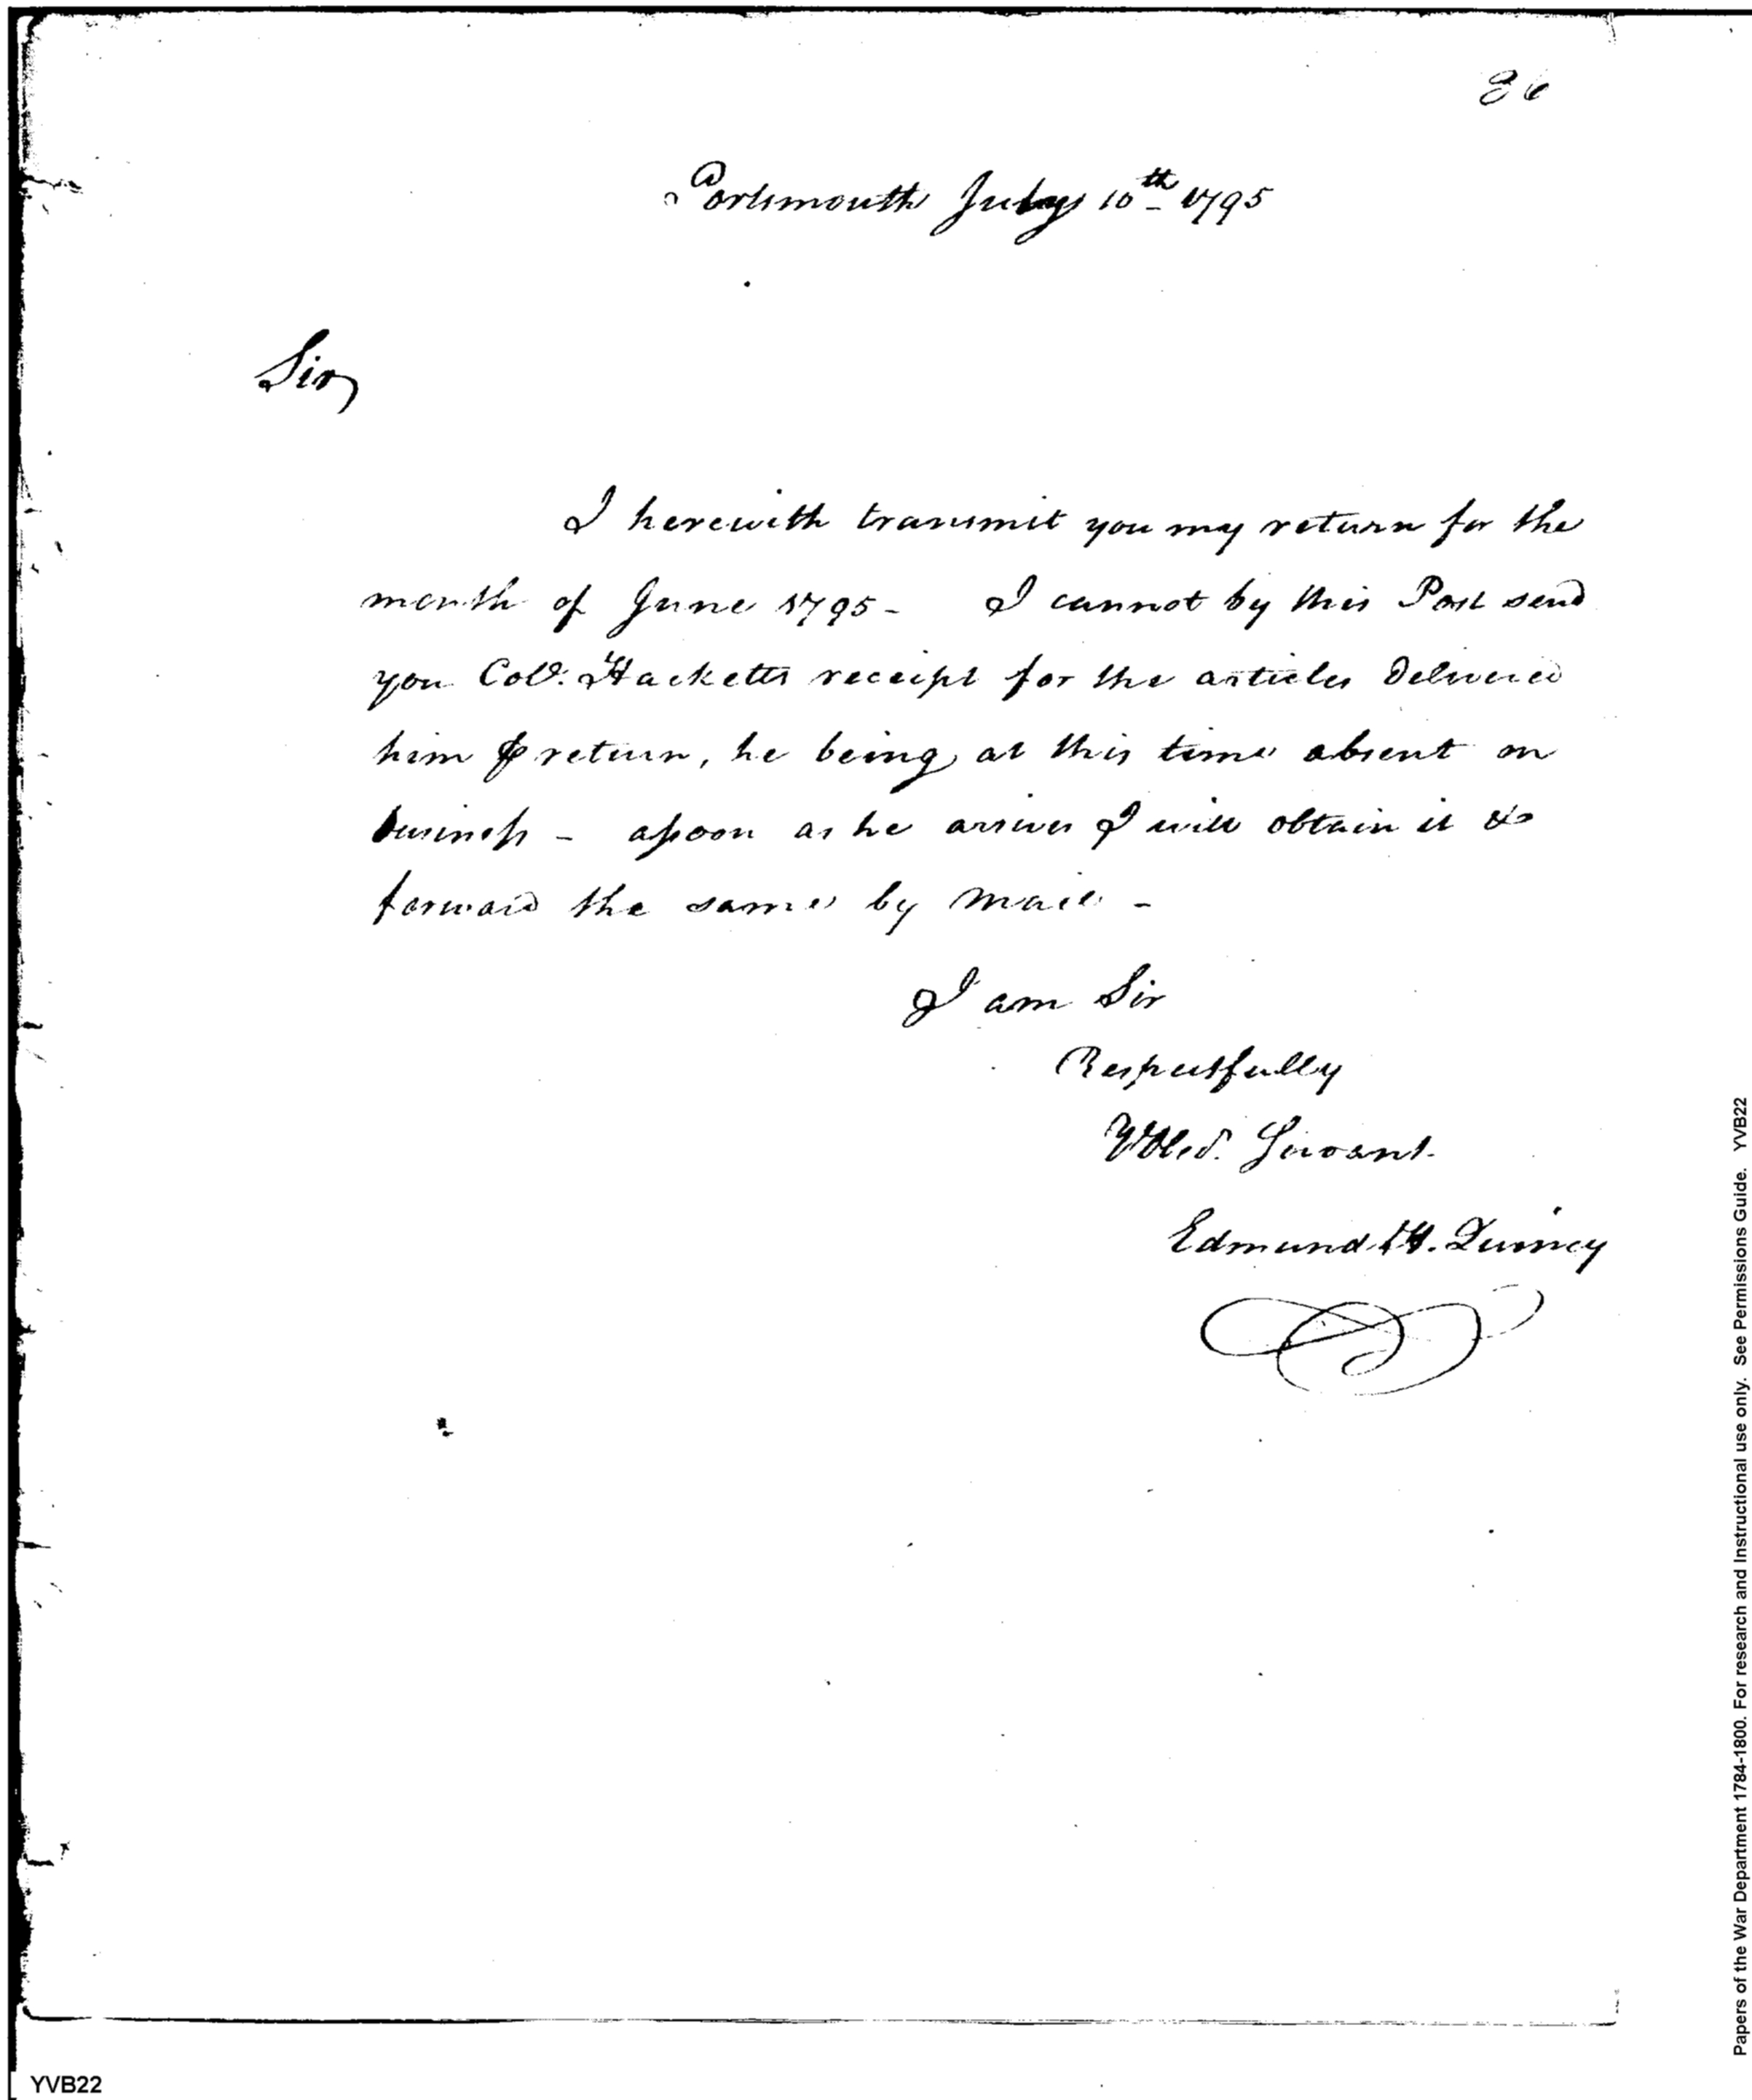 26
Portsmouth July 10th 1795
Sir,
I herewith transmit you my return for the
month of June 1795 - I cannot by this Post send
you Col. Hacketts receipt for the articles delivered
him ⅌ return, he being at this time absent on
business - assoon as he arrives I will obtain it &
forward the same by Mail -
I am Sir
Respectfully
Servant.
Edmund H. Quincy
Papers of the War Department 1784-1800. For research and Instructional use only. See Permissions Guide. YVB22
YVB22